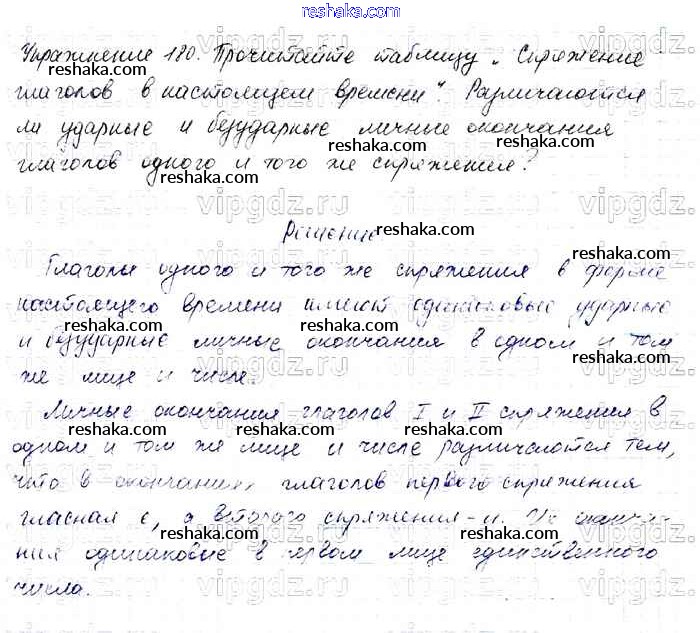 reshaka.com
Упражнение 180. Прочитайте таблицу „Спряжение
глаголов в настоящем времени“. Различаются
ли ударные и безударные личные окончания
глаголов одного и того же спряжения?
Решение
Глаголы одного и того же спряжения в форме
настоящего времени имеют одинаковые ударные
и безударные личные окончания в одном и том
же лице и числе.
Личные окончания глаголов I и II спряжения в
одном и том же лице и числе различаются тем,
что в окончаниях глаголов первого спряжения
гласная е, а второго спряжения - и. оконча-
ния одинаковые в первом лице единственного
числа.